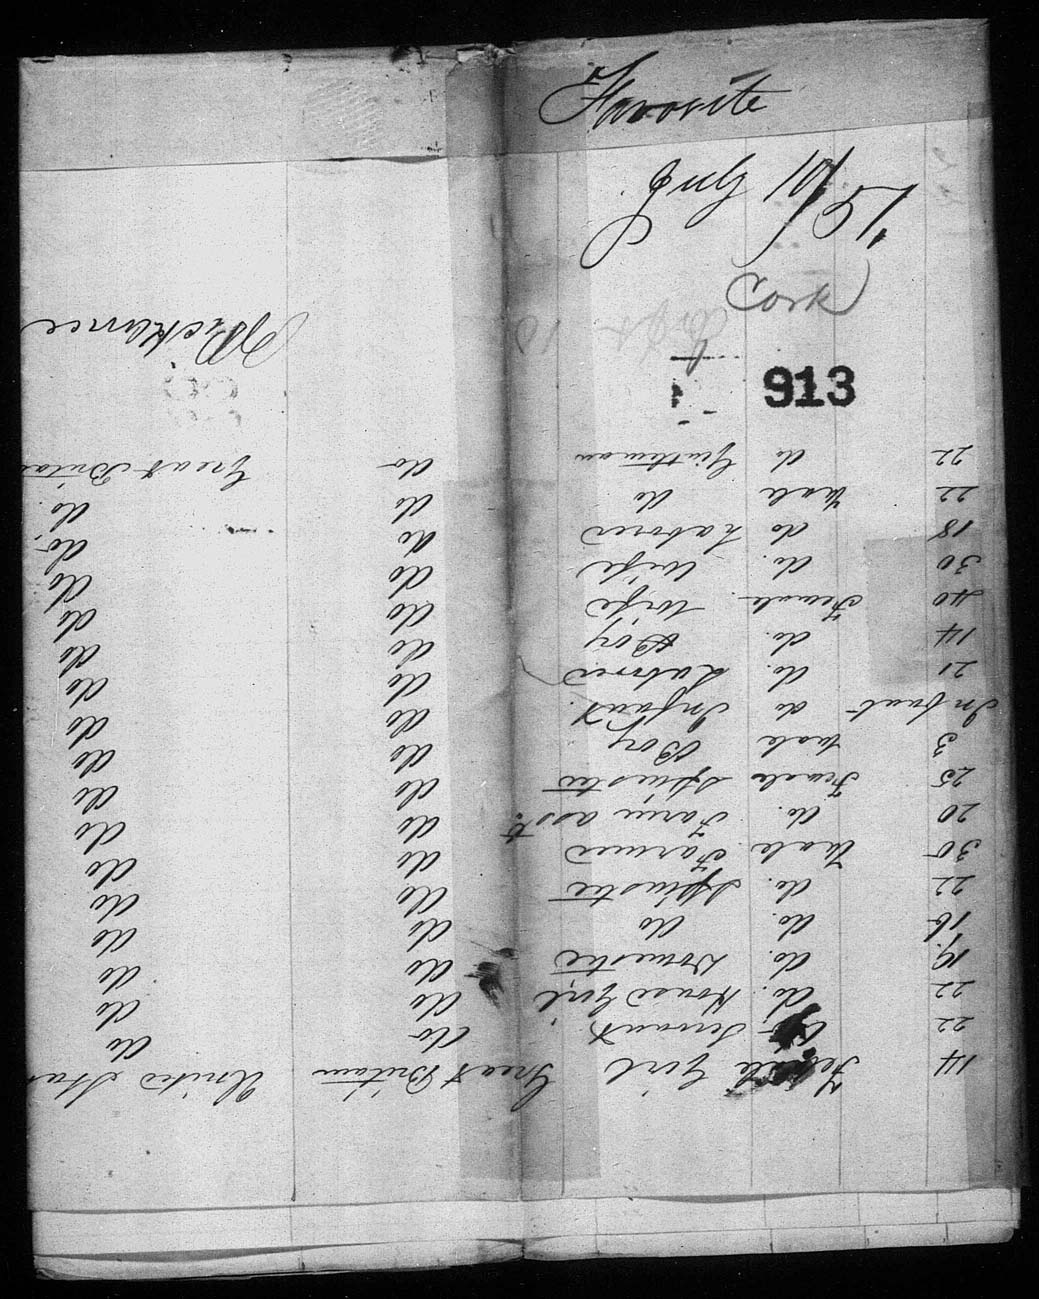 Favorite
July 10/
Cork
913
14 Female Girl Great Britain United Sta
22 do Servant do do
22 do. House Girl do do
19. do. Domestic do do
16 do. do do do
22 do. Spinster do do
30 Male Farmer do do
20 do. Farm asst. do do
25 Female Spinster do do
3 Male Boy do do
Infant do Infant. do do
21 do. Laborer do do
14 do. Boy do do
40 Female Wife do do
30 do. Wife do do
18 do Laborer do do.
22 Male do do do.
22 do Gentleman do Great Britai